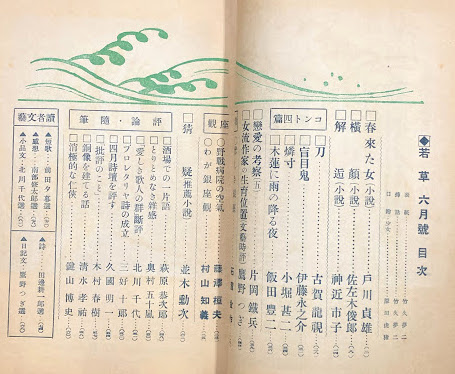 ◆若草 六月號 目次
表紙 竹久夢二
扉繪 竹久夢二
□春來た女(小説) 戸川貞雄
□橫顔(小説) 佐左木俊郎
□解逅(小説) 神近市子
コント四篇
□刀 古賀龍視
□盲目鬼 伊藤永之介
□燐寸 小堀甚二
□木蓮に雨の降る夜 飯田豐二
□戀愛の考察(五) 片岡鐵兵
□女流作家の生育位置(文藝時評) 鷹野つぎ
座觀
○野戰病院の空氣 藤澤桓夫
○わが銀座觀 村山知義
□猜疑(推薦小説) 並木勳次
評論・隨筆
□酒場での一片語 萩原恭次郎
□とりとめなき雜感 奥村五十嵐
□愛しき歌人の群斷評 北川千代
□プロレタリヤ詩の成立 三好十郎
□四月詩壇を評す 久國明一
□批評のこと 木村春樹
□銅像を建てる話 清水孝祐
□消極的な仁俠 鍵山博史
讀者文藝
▲短歌 前田夕暮選
▲感想 南部修太郎選
▲小品文 北川千代選
▲詩
▲日記文 鷹野つぎ選